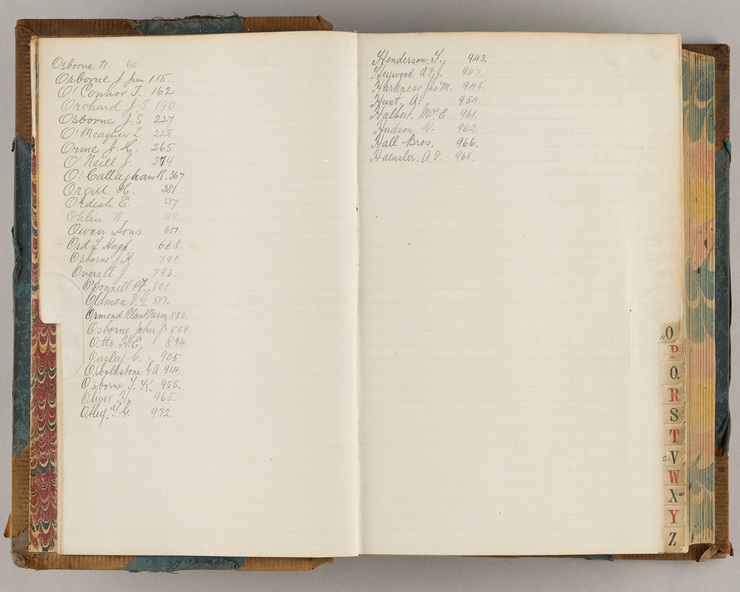 Osborne W. 60
Osborne J. Jun 115.
O'Connor T. 162
Orchard J. S. 190
Osborne J. S 227
O'Meagher L 228
Orme J. H. 265
O'Neill J. 274
O'Callaghan R. 367
Orgill H. 381
Ordish E. 517
Ohlin W.
Owen Sons 651.
Ord J Hugh. 668.
Osborne J. H. 790.
Overall J 793.
O'Donnell 801
Oldman V. G. 817.
Ormond Plant Farm 833.
Osborne John 859.
Otto H. E. 894.
Ousley C. 905.
Osboldstone G. A 914.
Osborne T. K. 955.
Oliver 965.
972.
Henderson T. 943.
Heywood A. J. 947.
Harkness Js M. 945.
Hunt A. 954.
Halbert Mrs E. 961.
Hudson W. 962.
Hall Bros. 966.
Haensler, A. 965.
O
P
Q
R
S
T
V
W
X
Y
Z